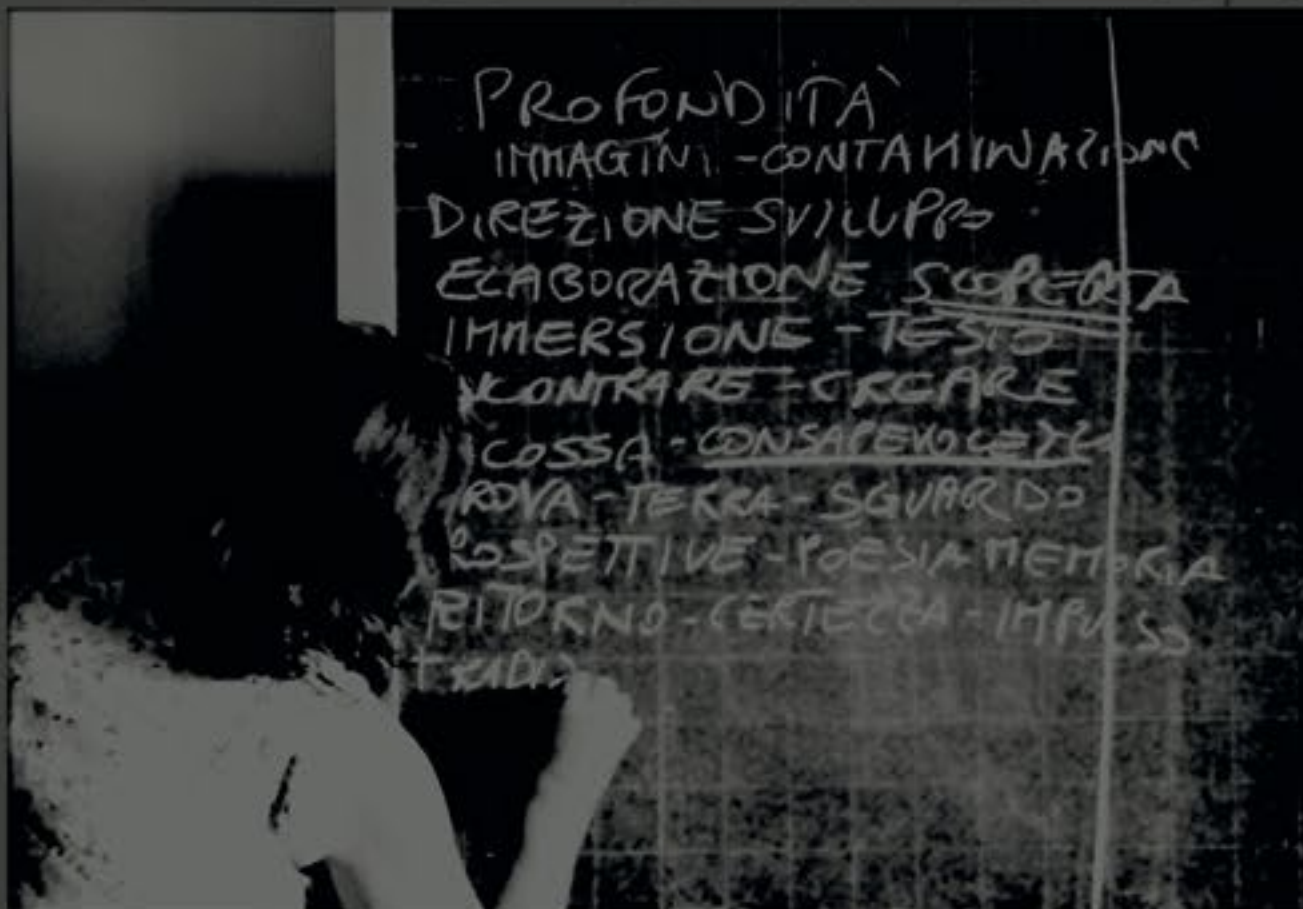 PROFONDITÀ
IMMAGINI - CONTAMINAZIONE
DIREZIONE SVILUPPO
ELABORAZIONE SCOPERTA
IMMERSIONE - TESTO
NCONTRARE - CREARE
COSSA - CONSAPEVOLEZZA
ROVA - TERRA - SGUARDO
ROSPETTIVE - POESIA MEMORIA
RITORNO - CERTEZZA - IMPULSO
TRADIZ